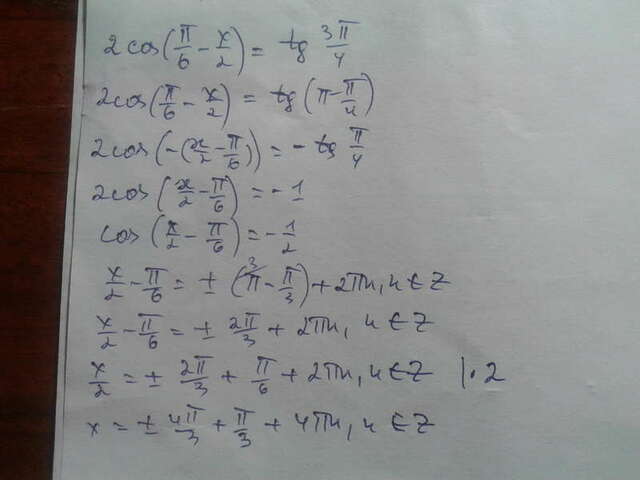 2cos(π/6 - x/2) = tg 3π/4
2cos(π/6 - x/2) = tg(π - π/4)
2cos(-(x/2 - π/6)) = - tg π/4
2cos(x/2 - π/6) = -1
cos(x/2 - π/6) = -1/2
x/2 - π/6 = ± (³π - π/3) + 2πn, n ∈ Z
x/2 - π/6 = ± 2π/3 + 2πn, n ∈ Z
x/2 = ± 2π/3 + π/6 + 2πn, n ∈ Z |·2
x = ± 4π/3 + π/3 + 4πn, n ∈ Z